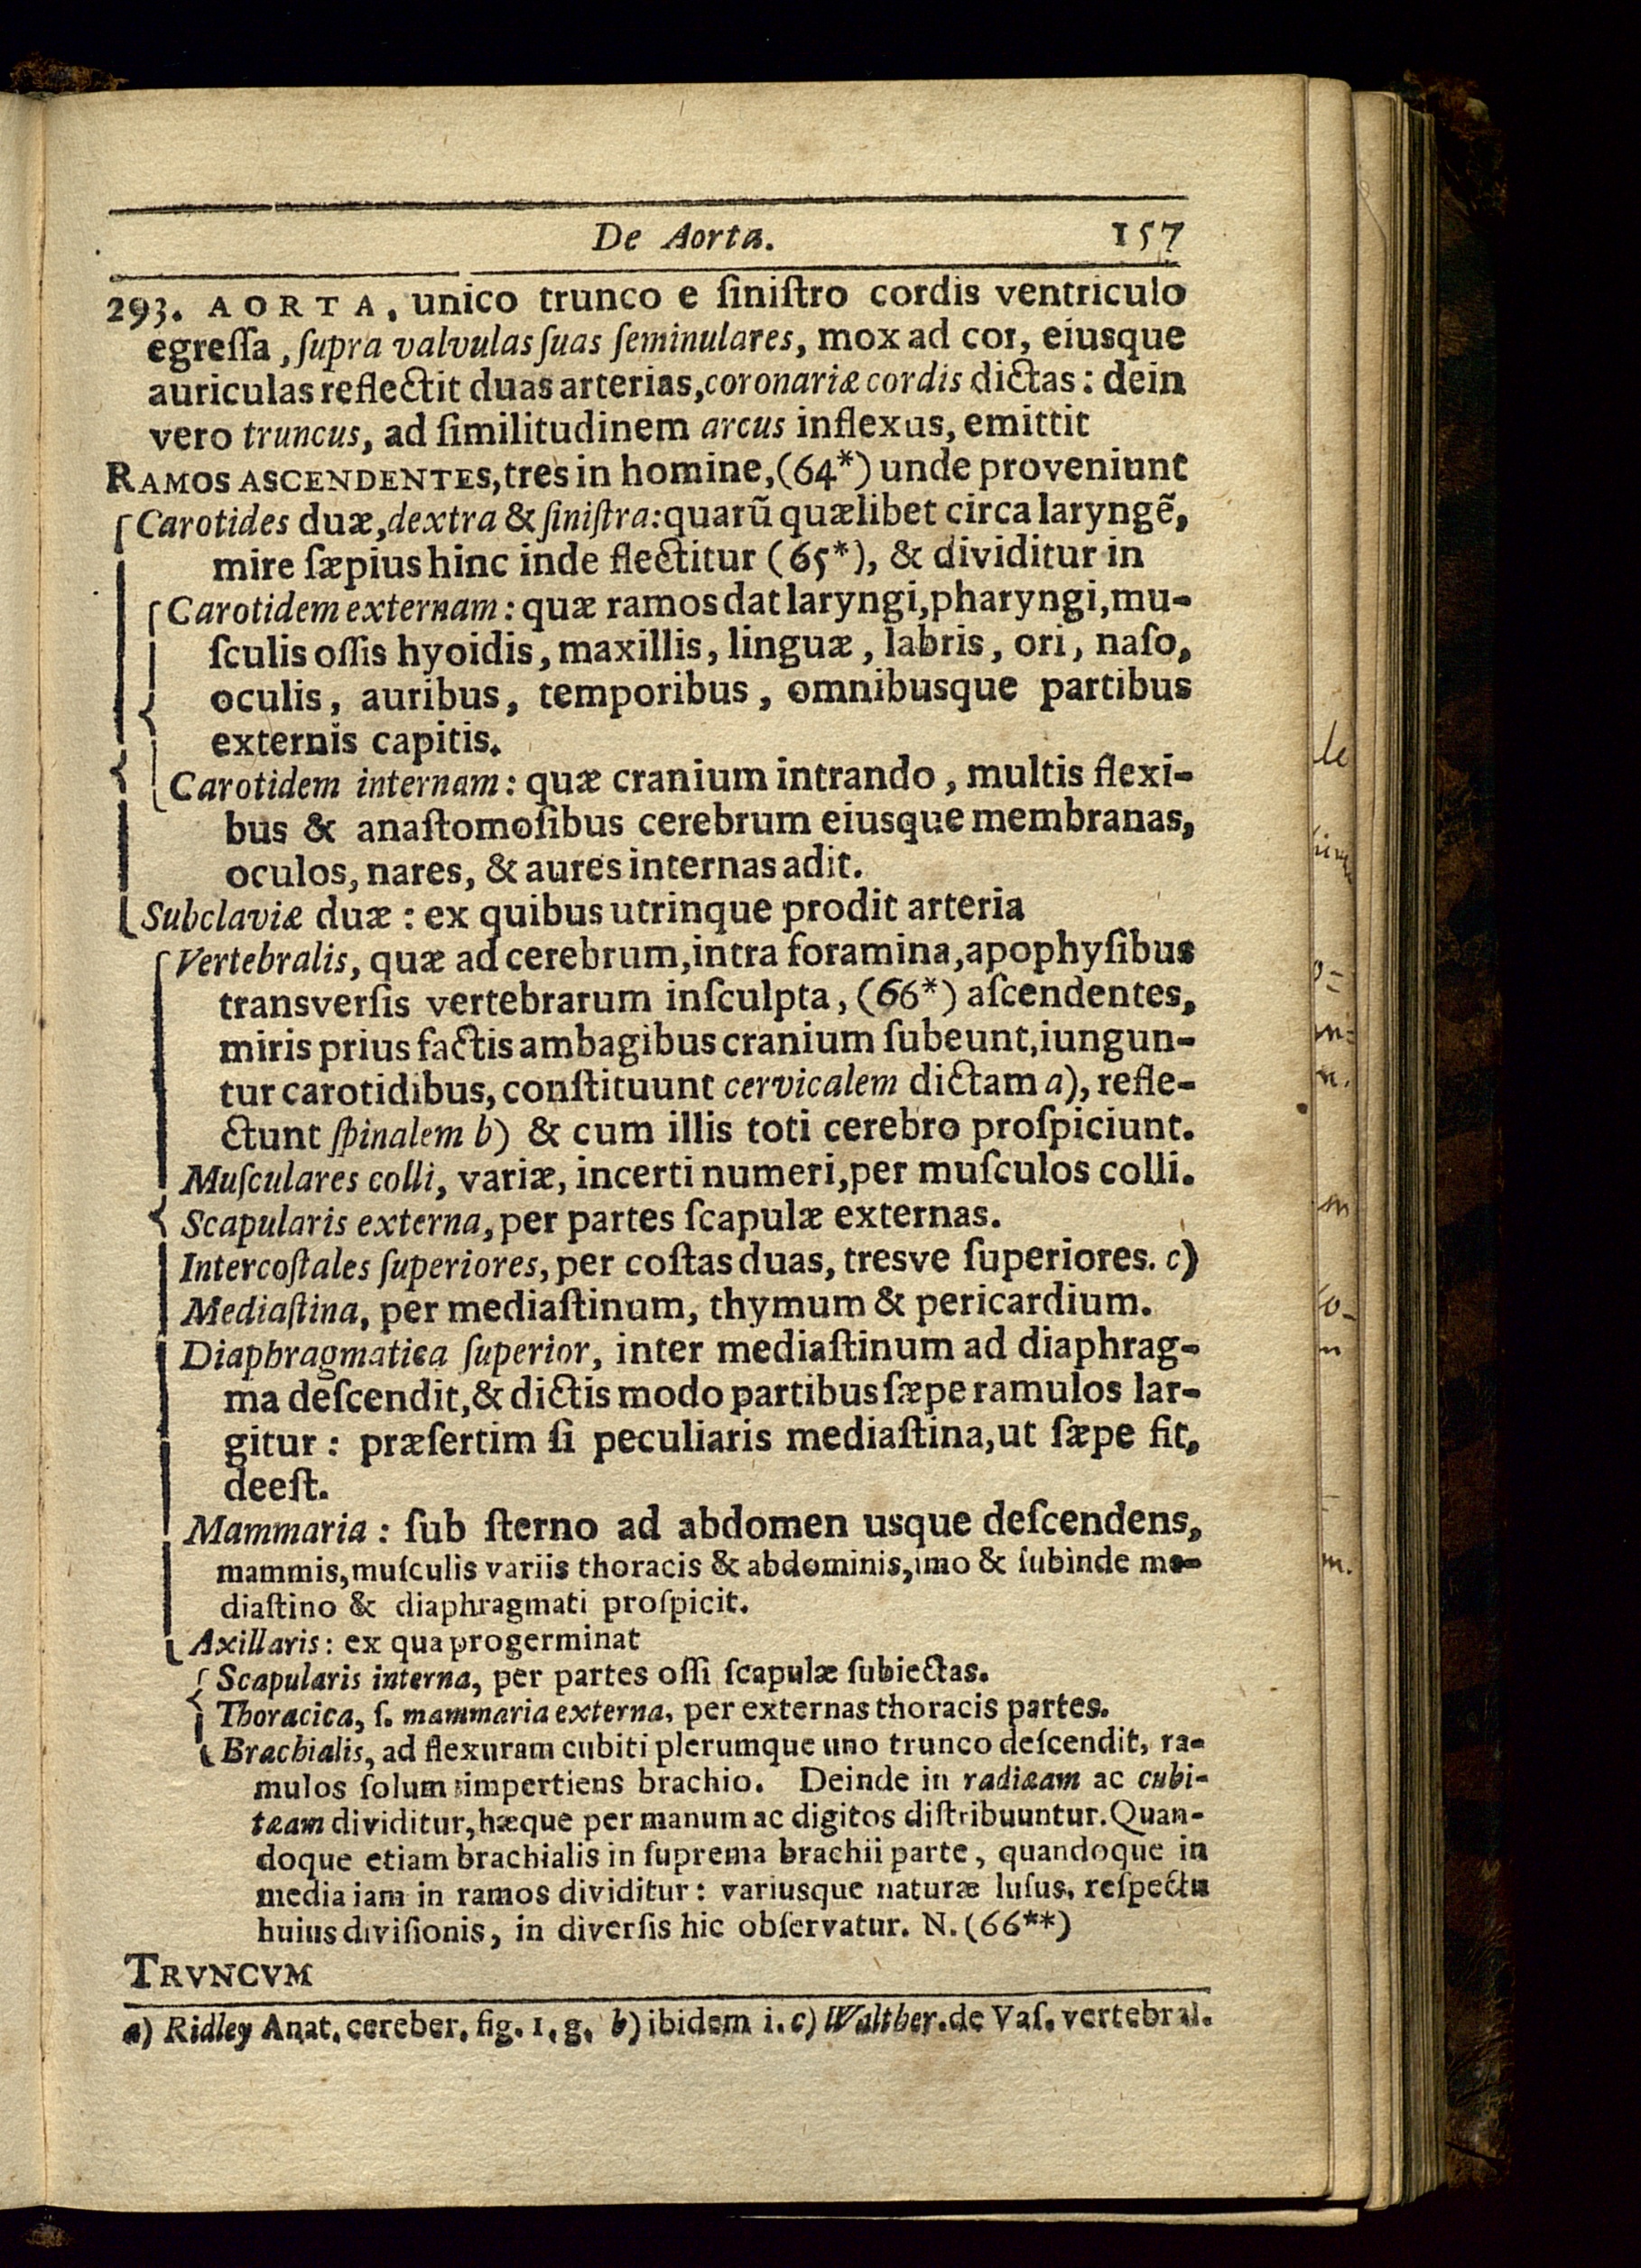 De Aorta. 157
293. AORTA, unico trunco e ſiniſtro cordis ventriculo
egreſſa, ſupra valvulas ſuas ſeminulares, mox ad cor, eiusque
auriculas reflectit duas arterias, coronariæ cordis dictas: dein
vero truncus, ad ſimilitudinem arcus inflexus, emittit
RAMOS ASCENDENTES, tres in homine, (64*) unde proveniunt
Carotides duæ, dextra & ſiniſtra: quarũ quælibet circa laryngẽ,
mire ſæpius hinc inde flectitur (65*), & dividitur in
Carotidem externam: quæ ramos dat laryngi, pharyngi, mu-
ſculis oſſis hyoidis, maxillis, linguæ, labris, ori, naſo,
oculis, auribus, temporibus, omnibusque partibus
externis capitis.
Carotidem internam: quæ cranium intrando, multis flexi-
bus & anaſtomoſibus cerebrum eiusque membranas,
oculos, nares, & aures internas adit.
Subclaviæ duæ: ex quibus utrinque prodit arteria
Vertebralis, quæ ad cerebrum, intra foramina, apophyſibus
transverſis vertebrarum inſculpta, (66*) aſcendentes,
miris prius factis ambagibus cranium ſubeunt, iungun-
tur carotidibus, conſtituunt cervicalem dictam a), refle-
ctunt ſpinalem b) & cum illis toti cerebro proſpiciunt.
Muſculares colli, variæ, incerti numeri, per muſculos colli.
Scapularis externa, per partes ſcapulæ externas.
Intercoſtales ſuperiores, per coſtas duas, tresve ſuperiores. c)
Mediaſtina, per mediaſtinum, thymum & pericardium.
Diaphragmatica ſuperior, inter mediaſtinum ad diaphrag-
ma deſcendit, & dictis modo partibus ſæpe ramulos lar-
gitur: præſertim ſi peculiaris mediaſtina, ut ſæpe fit,
deeſt.
Mammaria: ſub ſterno ad abdomen usque deſcendens,
mammis, muſculis variis thoracis & abdominis, imo & ſubinde me-
diaſtino & diaphragmati proſpicit.
Axillaris: ex qua progerminat
Scapularis interna, per partes oſſi ſcapulæ ſubiectas.
Thoracica, ſ. mammaria externa, per externas thoracis partes.
Brachialis, ad flexuram cubiti plerumque uno trunco deſcendit, ra-
mulos ſolum impertiens brachio. Deinde in radiæam ac cubi-
tæam dividitur, hæque per manum ac digitos diſtribuuntur. Quan-
doque etiam brachialis in ſuprema brachii parte, quandoque in
media iam in ramos dividitur: variusque naturæ luſus, reſpectu
huius diviſionis, in diverſis hic obſervatur. N. (66**)
TRVNCVM
a) Ridley Anat. cereber. fig. 1. g. b) ibidem i. c) Walther. de Vaſ. vertebral.